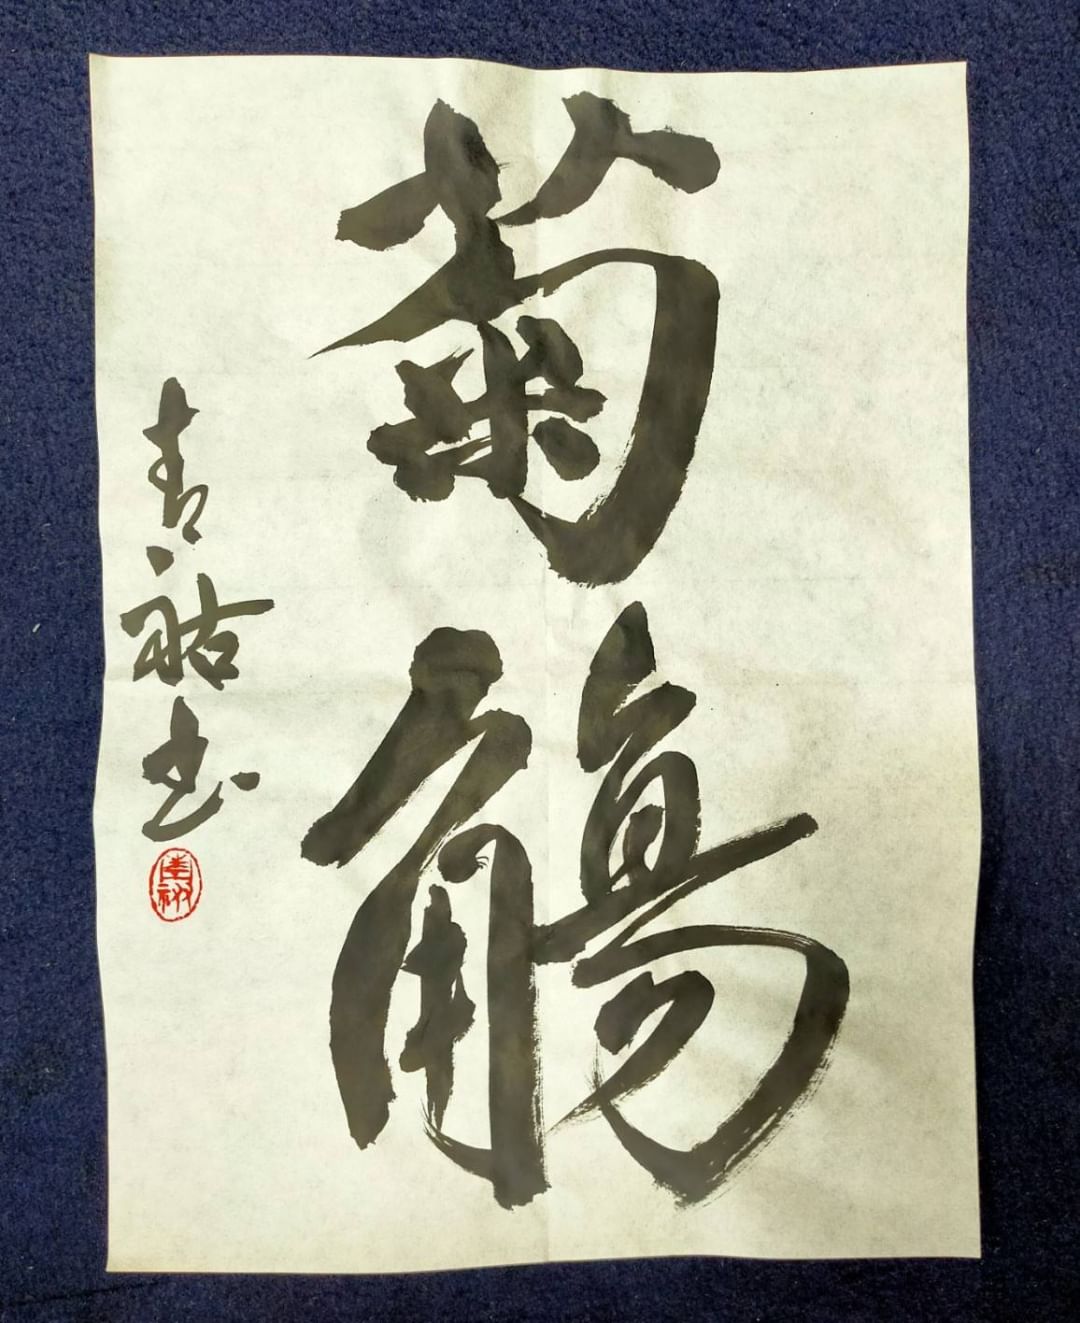 菊觴
青祐書